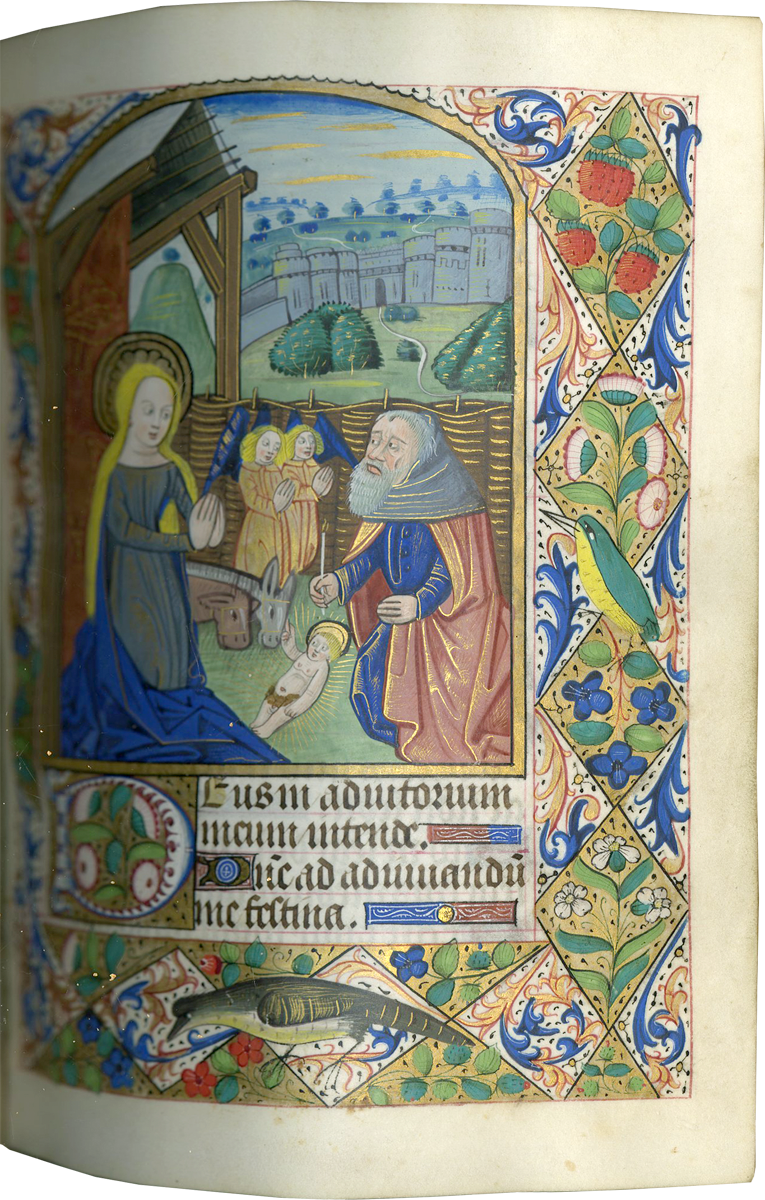 Deus in adiutorium
meum intende.
Dñe ad adiuuandũ
me festina.